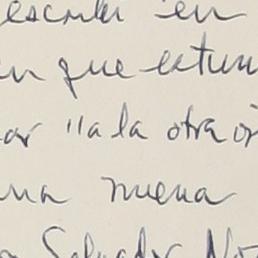 escribí en
en que estuv
ar "a la otra or
una nueva
Salvador Nov